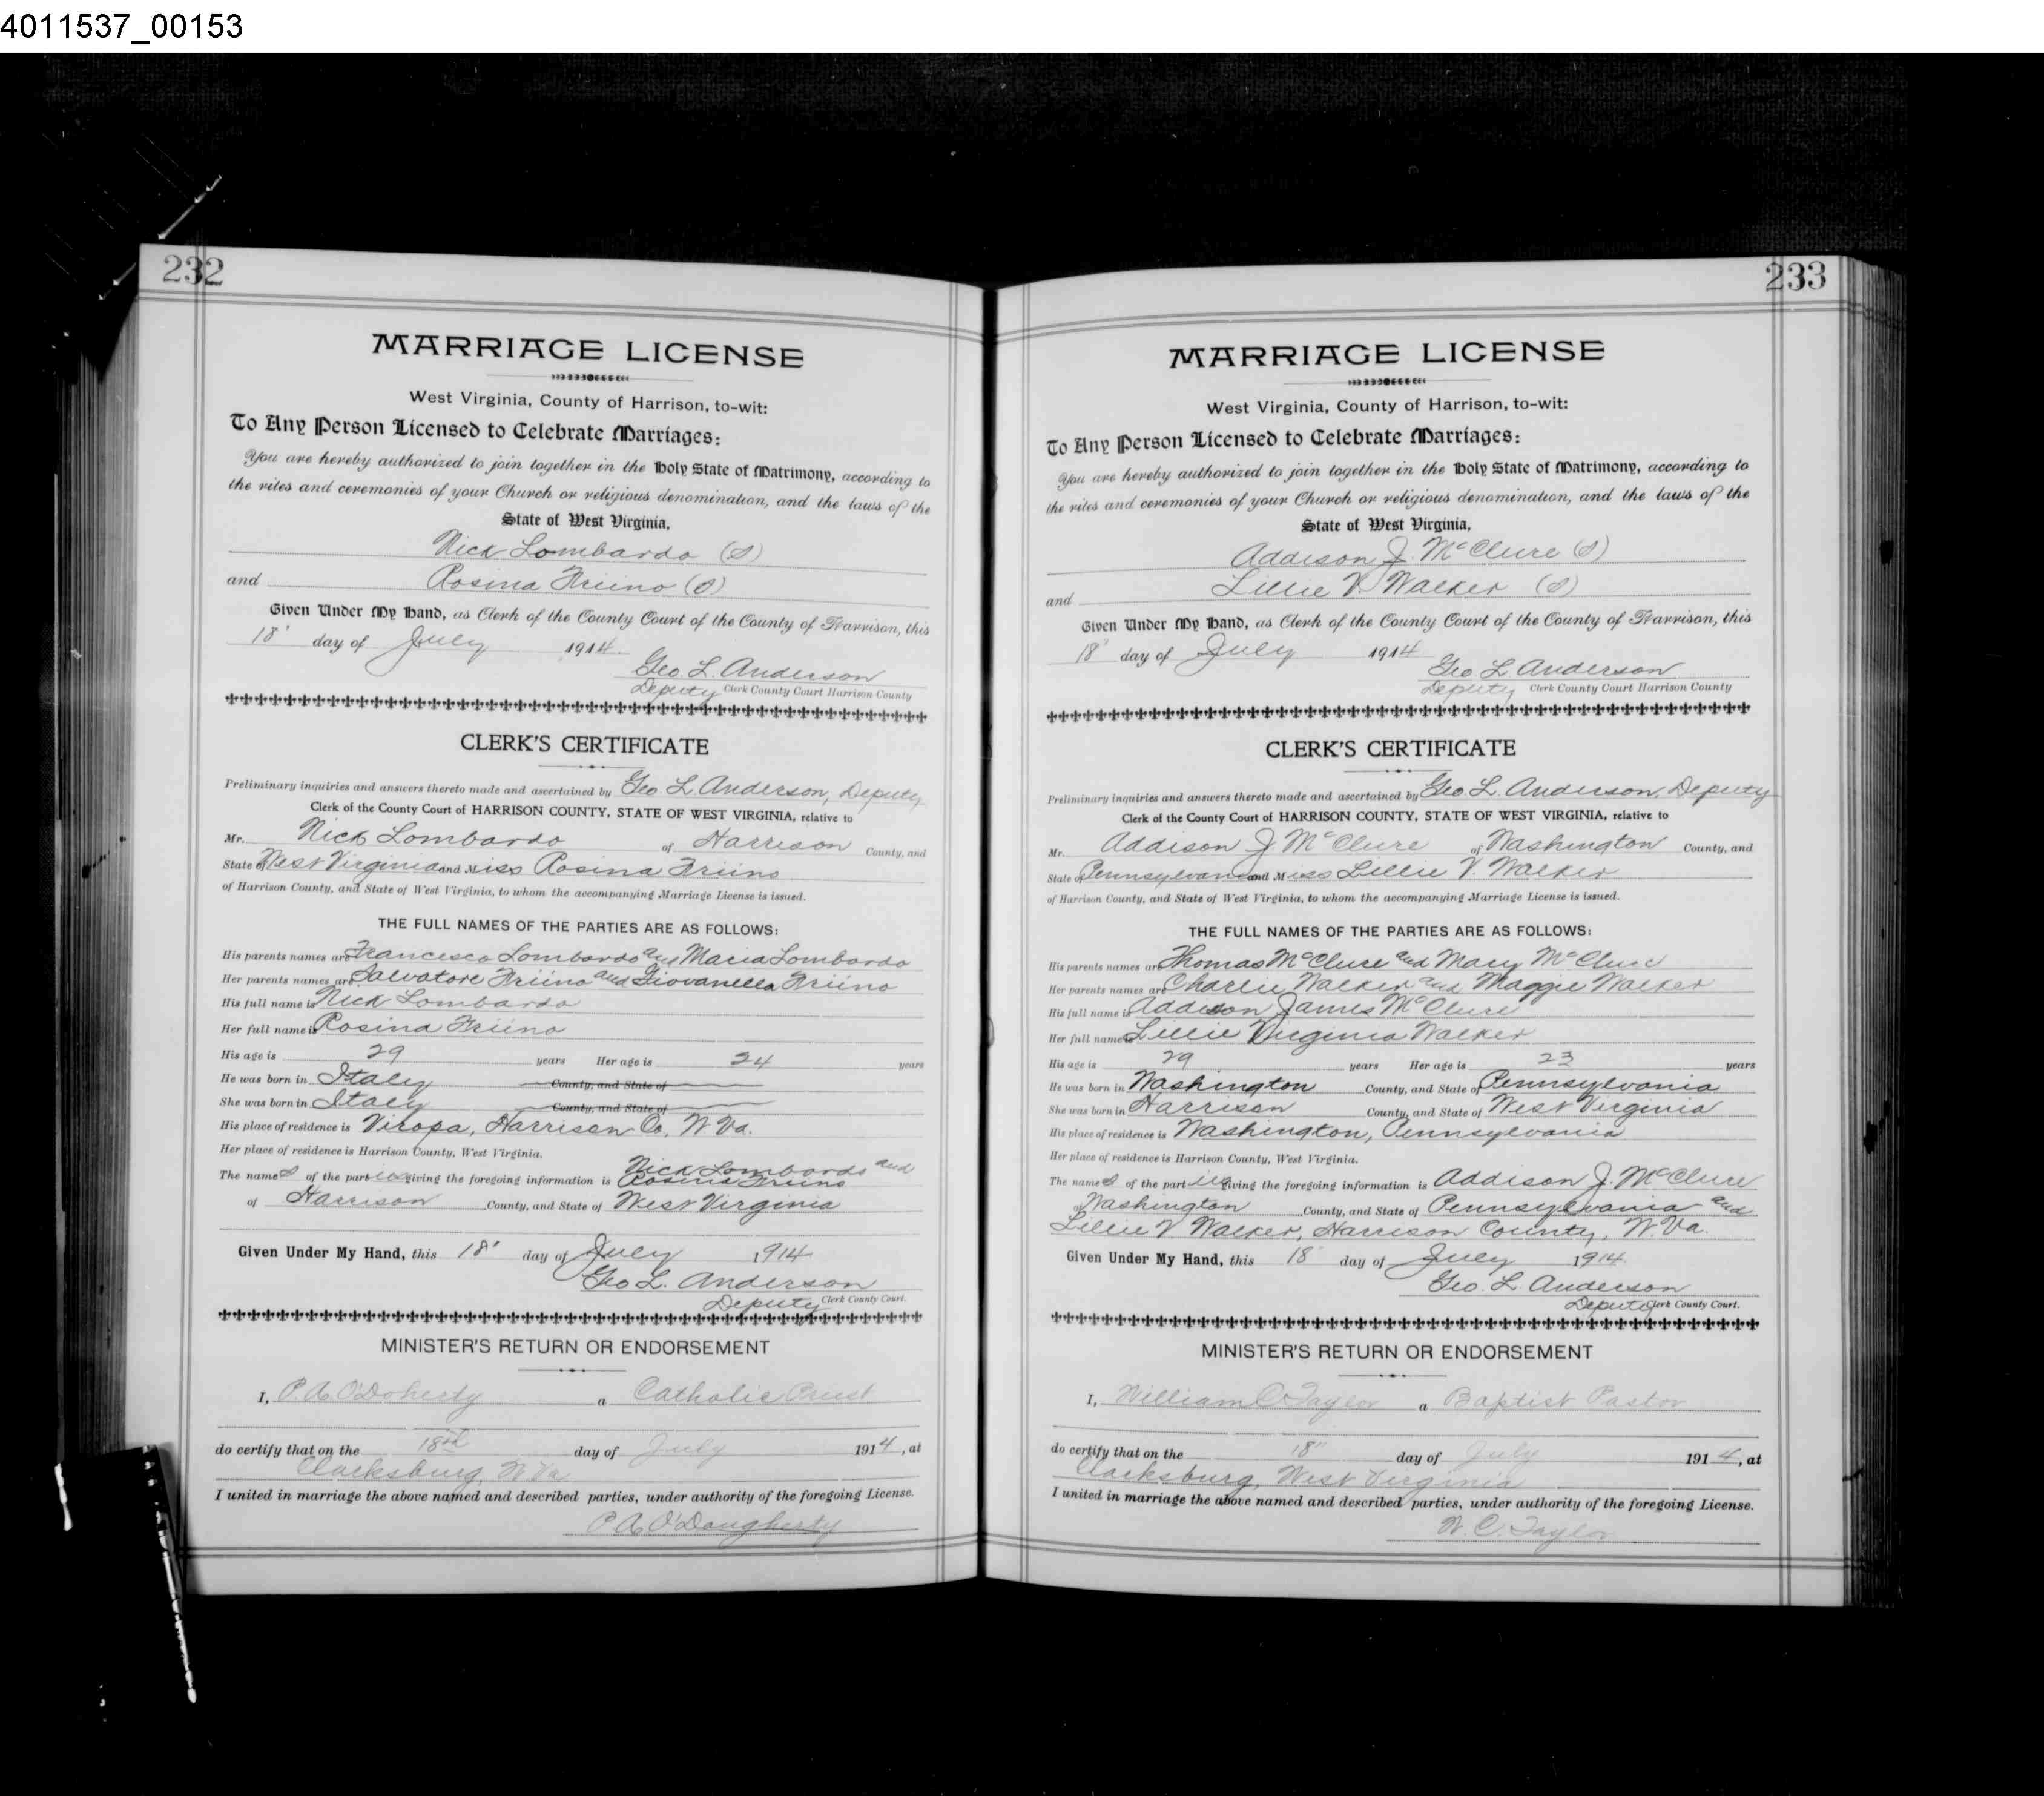 4011537_00153
232
MARRIAGE LICENSE
West Virginia, County of Harrison, to-wit:
To Any Person Licensed to Celebrate Marriages:
You are hereby authorized to join together in the Holy State of Matrimony, according to
the rites and ceremonies of your Church or religious denomination, and the laws of the
State of West Virginia,
Nick Lombardo (S)
and Rosina Friino (S)
Given Under My Hand, as Clerk of the County Court of the County of Harrison, this
18' day of July 1914
Geo L. Anderson
Deputy Clerk County Court Harrison County
CLERK'S CERTIFICATE
Preliminary inquiries and answers thereto made and ascertained by Geo. L. Anderson, Deputy
Clerk of the County Court of HARRISON COUNTY, STATE OF WEST VIRGINIA, relative to
Mr. Nick Lombardo of Harrison County, and
State of West Virginia and Miss Rosina Friino
of Harrison County, and State of West Virginia, to whom the accompanying Marriage License is issued.
THE FULL NAMES OF THE PARTIES ARE AS FOLLOWS:
His parents names are Francesco Lombardo and Maria Lombardo
Her parents names are Salvatore Friino and Giovanella Friino
His full name is Nick Lombardo
Her full name is Rosina Friino
His age is 29 years Her age is 24 years
He was born in Italy County, and State of
She was born in Italy County, and State of
His place of residence is Viropa, Harrison Co, W Va.
Her place of residence is Harrison County, West Virginia.
The names of the parties giving the foregoing information is Nick Lombardo and
Rosina Friino
of Harrison County, and State of West Virginia
Given Under My Hand, this 18' day of July 1914
Geo L. Anderson
Deputy Clerk County Court.
MINISTER'S RETURN OR ENDORSEMENT
I, P. A. O'Doherty a Catholic Priest
do certify that on the 18th day of July 1914, at
Clarksburg, W. Va
I united in marriage the above named and described parties, under authority of the foregoing License.
P A O'Dougherty
233
MARRIAGE LICENSE
West Virginia, County of Harrison, to-wit:
To Any Person Licensed to Celebrate Marriages:
You are hereby authorized to join together in the Holy State of Matrimony, according to
the rites and ceremonies of your Church or religious denomination, and the laws of the
State of West Virginia,
Addison J. McClure (S)
and Lillie V. Walker (S)
Given Under My Hand, as Clerk of the County Court of the County of Harrison, this
18' day of July 1914
Geo L Anderson
Deputy Clerk County Court Harrison County
CLERK'S CERTIFICATE
Preliminary inquiries and answers thereto made and ascertained by Geo. L. Anderson, Deputy
Clerk of the County Court of HARRISON COUNTY, STATE OF WEST VIRGINIA, relative to
Mr. Addison J McClure of Washington County, and
State of Pennsylvania and Miss Lillie V. Walker
of Harrison County, and State of West Virginia, to whom the accompanying Marriage License is issued.
THE FULL NAMES OF THE PARTIES ARE AS FOLLOWS:
His parents names are Thomas McClure and Mary McClure
Her parents names are Charlie Walker and Maggie Walker
His full name is Addison James McClure
Her full name is Lillie Virginia Walker
His age is 29 years Her age is 23 years
He was born in Washington County, and State of Pennsylvania
She was born in Harrison County, and State of West Virginia
His place of residence is Washington, Pennsylvania
Her place of residence is Harrison County, West Virginia.
The names of the parties giving the foregoing information is Addison J. McClure
of Washington County, and State of Pennsylvania and
Lillie V. Walker, Harrison County, W. Va.
Given Under My Hand, this 18 day of July 1914.
Geo. L Anderson
Deputy Clerk County Court.
MINISTER'S RETURN OR ENDORSEMENT
I, William C Taylor a Baptist Pastor
do certify that on the 18" day of July 1914, at
Clarksburg, West Virginia
I united in marriage the above named and described parties, under authority of the foregoing License.
W. C. Taylor